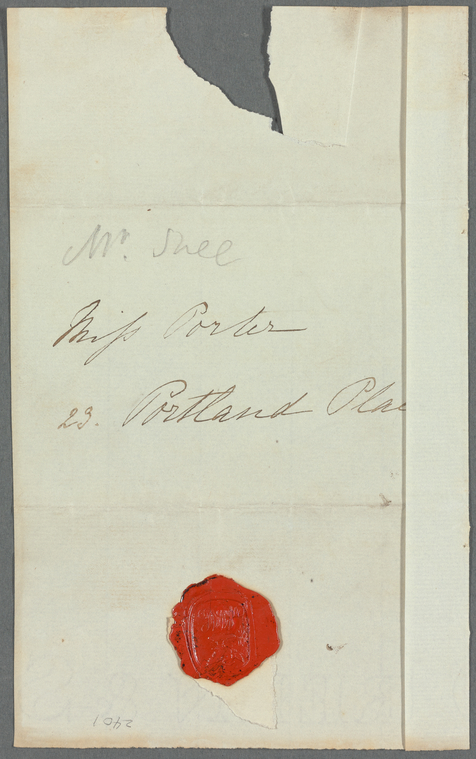 Mr. Shee
Miss Porter
23. Portland Plac
2401